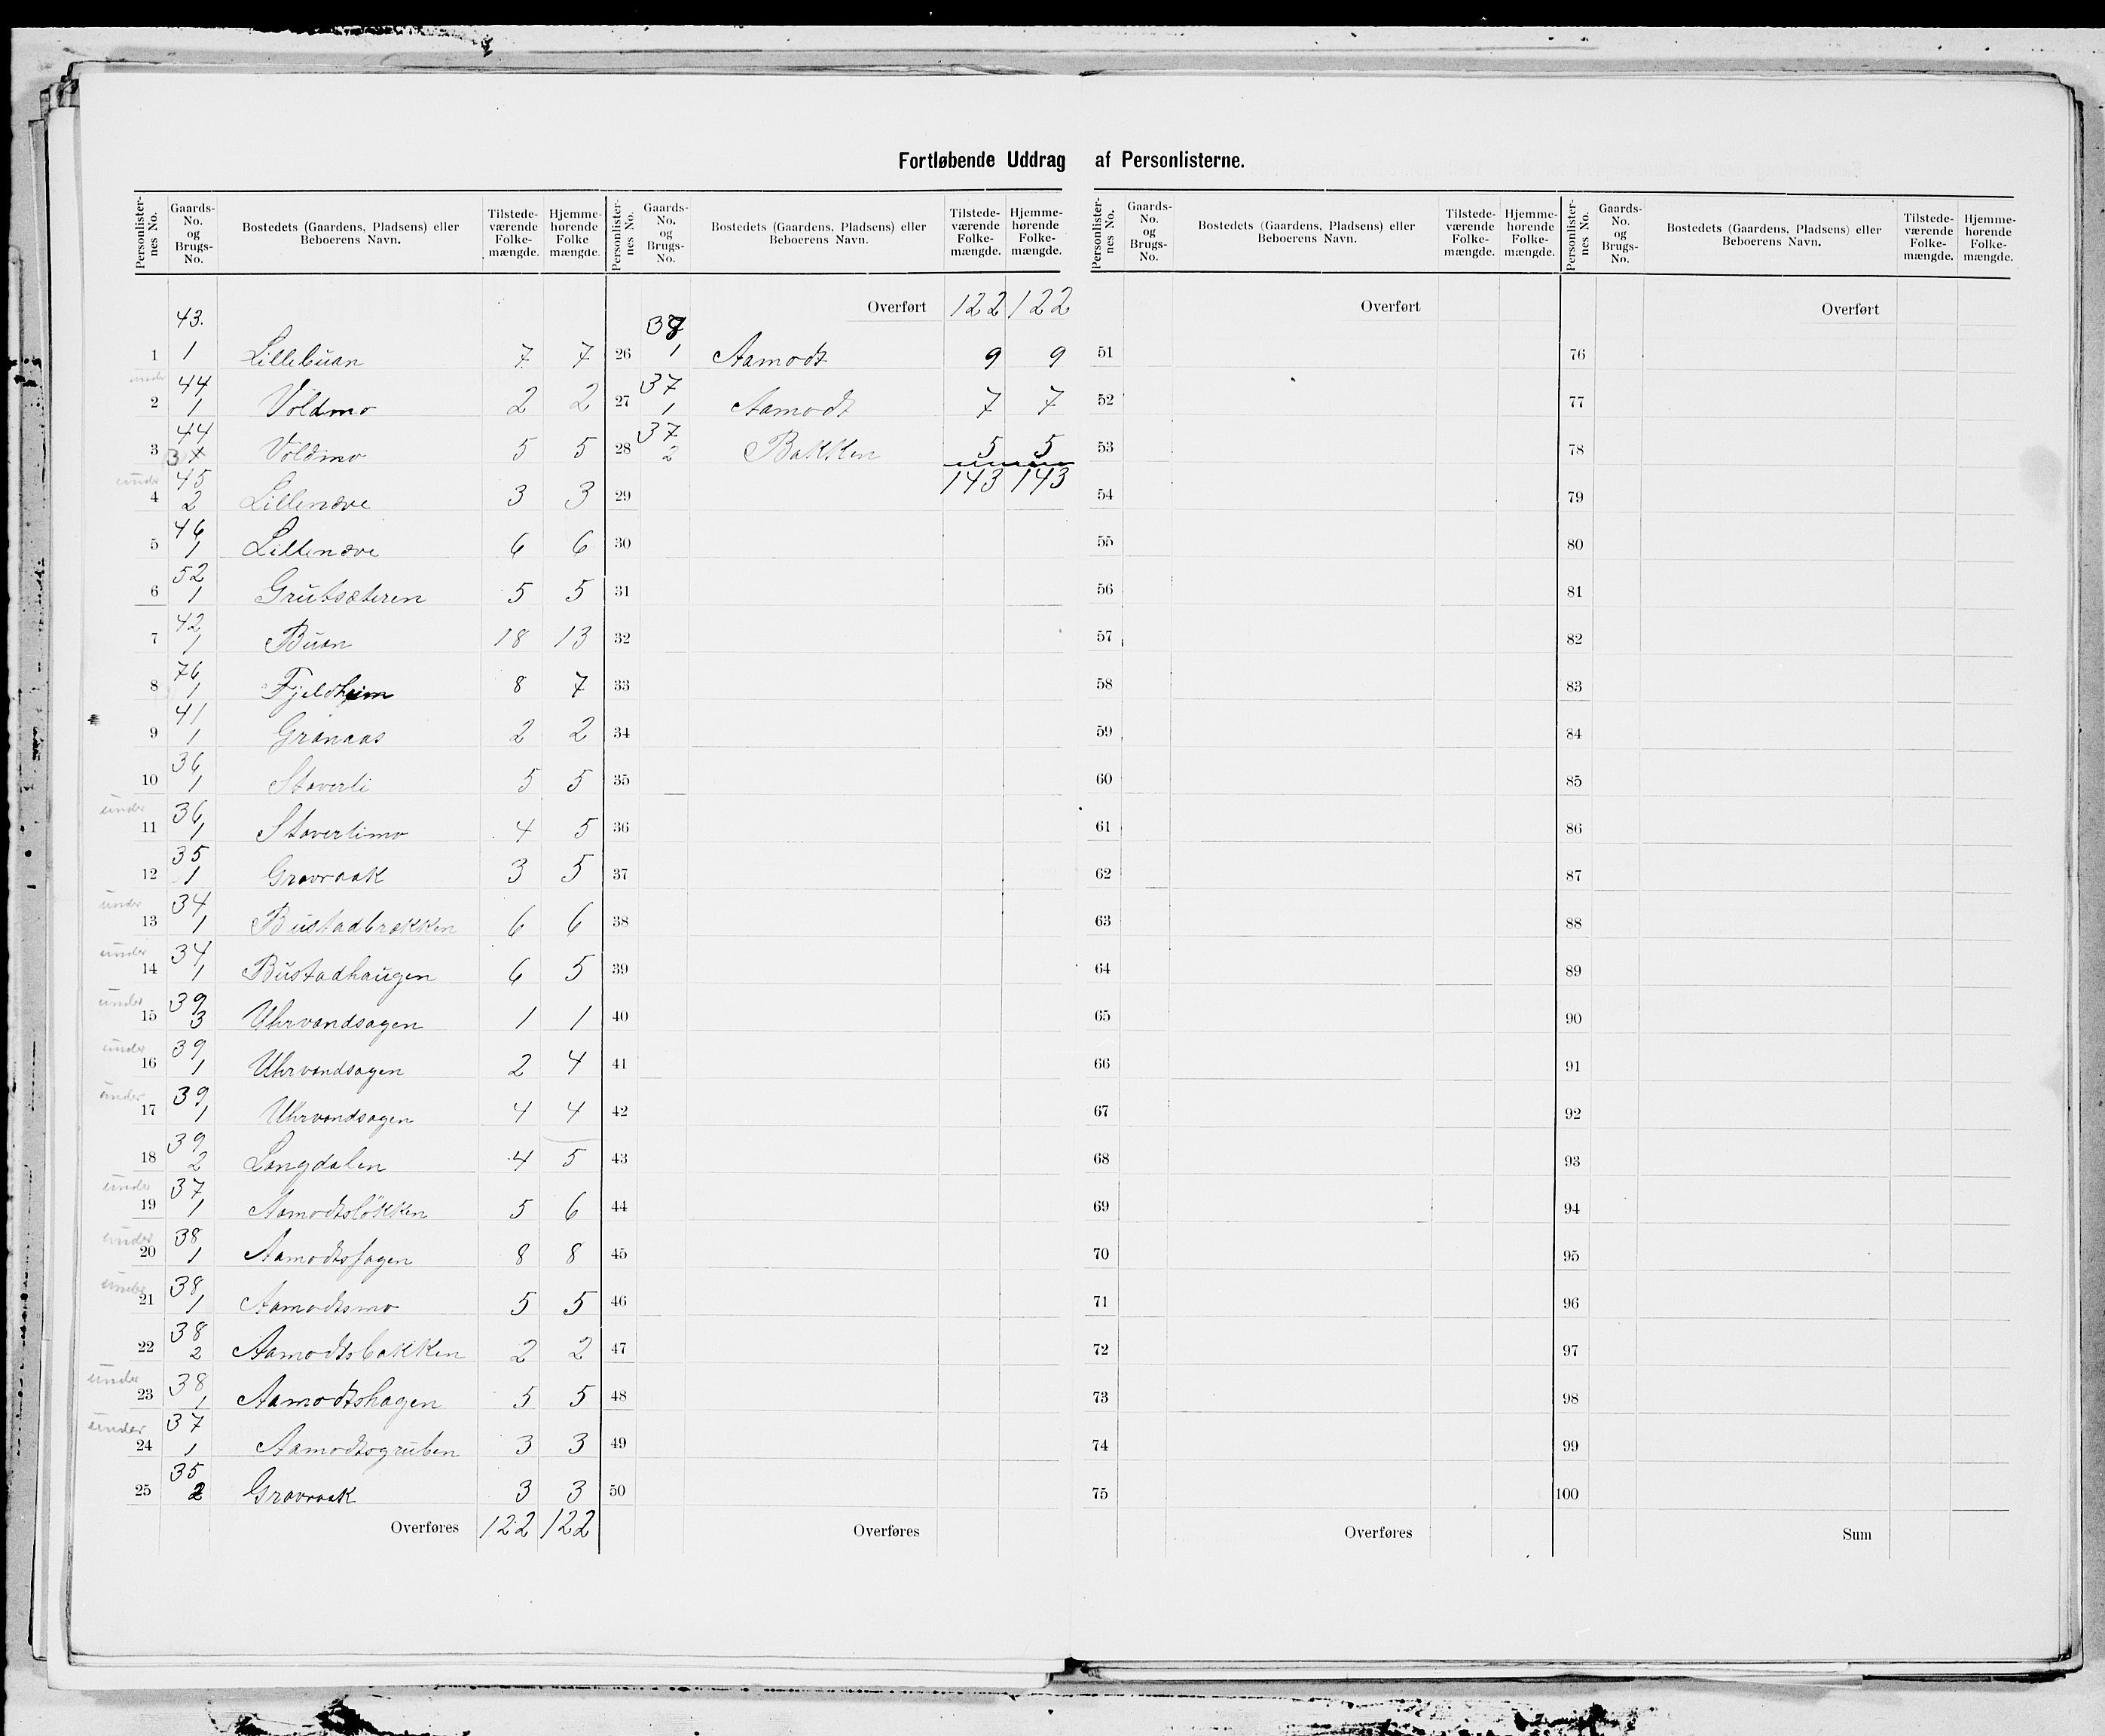 Fortløbende Uddrag af Personlisterne.
Personlister-nes No. | Gaards-No. og Brugs-No. | Bostedets (Gaardens, Pladsens) eller Beboerens Navn. | Tilstede-værende Folke-mængde. | Hjemme-hørende Folke mængde.
1 | 43. 1 | Lillebuan | 7 | 7
under 2 | 44 1 | Voldmo | 2 | 2
3 | 44 3 | Voldmo | 5 | 5
under 4 | 45 2 | Lillenæve | 3 | 3
5 | 46 1 | Lillenæve | 6 | 6
6 | 52 1 | Grutsæteren | 5 | 5
7 | 42 1 | Buan | 18 | 13
8 | 76 1 | Fjeldheim | 8 | 7
9 | 41 1 | Granaas | 2 | 2
10 | 36 1 | Staverli | 5 | 5
under 11 | 36 1 | Staverlimo | 4 | 5
12 | 35 1 | Gravraak | 3 | 5
under 13 | 34 1 | Bustadbrækken | 6 | 6
under 14 | 34 1 | Bustadhaugen | 6 | 5
under 15 | 39 3 | Uhrvandsagen | 1 | 1
under 16 | 39 1 | Uhrvandsagen | 2 | 4
under 17 | 39 1 | Uhrvandsagen | 4 | 4
18 | 39 2 | Langdalen | 4 | 5
under 19 | 37 1 | Aamodtsløkken | 5 | 6
under 20 | 38 1 | Aamodtssagen | 8 | 8
under 21 | 38 1 | Aamodtsmo | 5 | 5
22 | 38 2 | Aamodtsbakken | 2 | 2
under 23 | 38 1 | Aamodtshagen | 5 | 5
under 24 | 37 1 | Aamodtsgruben | 3 | 3
25 | 35 2 | Gravraak | 3 | 3
Overføres | 122 | 122
Personlister-nes No. | Gaards-No. og Brugs-No. | Bostedets (Gaardens, Pladsens) eller Beboerens Navn. | Tilstede-værende Folke-mængde. | Hjemme-hørende Folke-mængde.
Overført | 122 | 122
26 | 38 1 | Aamodt | 9 | 9
27 | 37 1 | Aamodt | 7 | 7
28 | 37 2 | Bakken | 5 | 5
29 | 143 | 143
30
31
32
33
34
35
36
37
38
39
40
41
42
43
44
45
46
47
48
49
50
Overføres
Personlister-nes No. | Gaards-No. og Brugs-No. | Bostedets (Gaardens, Pladsens) eller Beboerens Navn. | Tilstede-værende Folke-mængde. | Hjemme-hørende Folke-mængde.
Overført
51
52
53
54
55
56
57
58
59
60
61
62
63
64
65
66
67
68
69
70
71
72
73
74
75
Overføres
Personlister-nes No. | Gaards-No. og Brugs-No. | Bostedets (Gaardens, Pladsens) eller Beboerens Navn. | Tilstede-værende Folke-mængde. | Hjemme-hørende Folke-mængde.
Overført
76
77
78
79
80
81
82
83
84
85
86
87
88
89
90
91
92
93
94
95
96
97
98
99
100
Sum